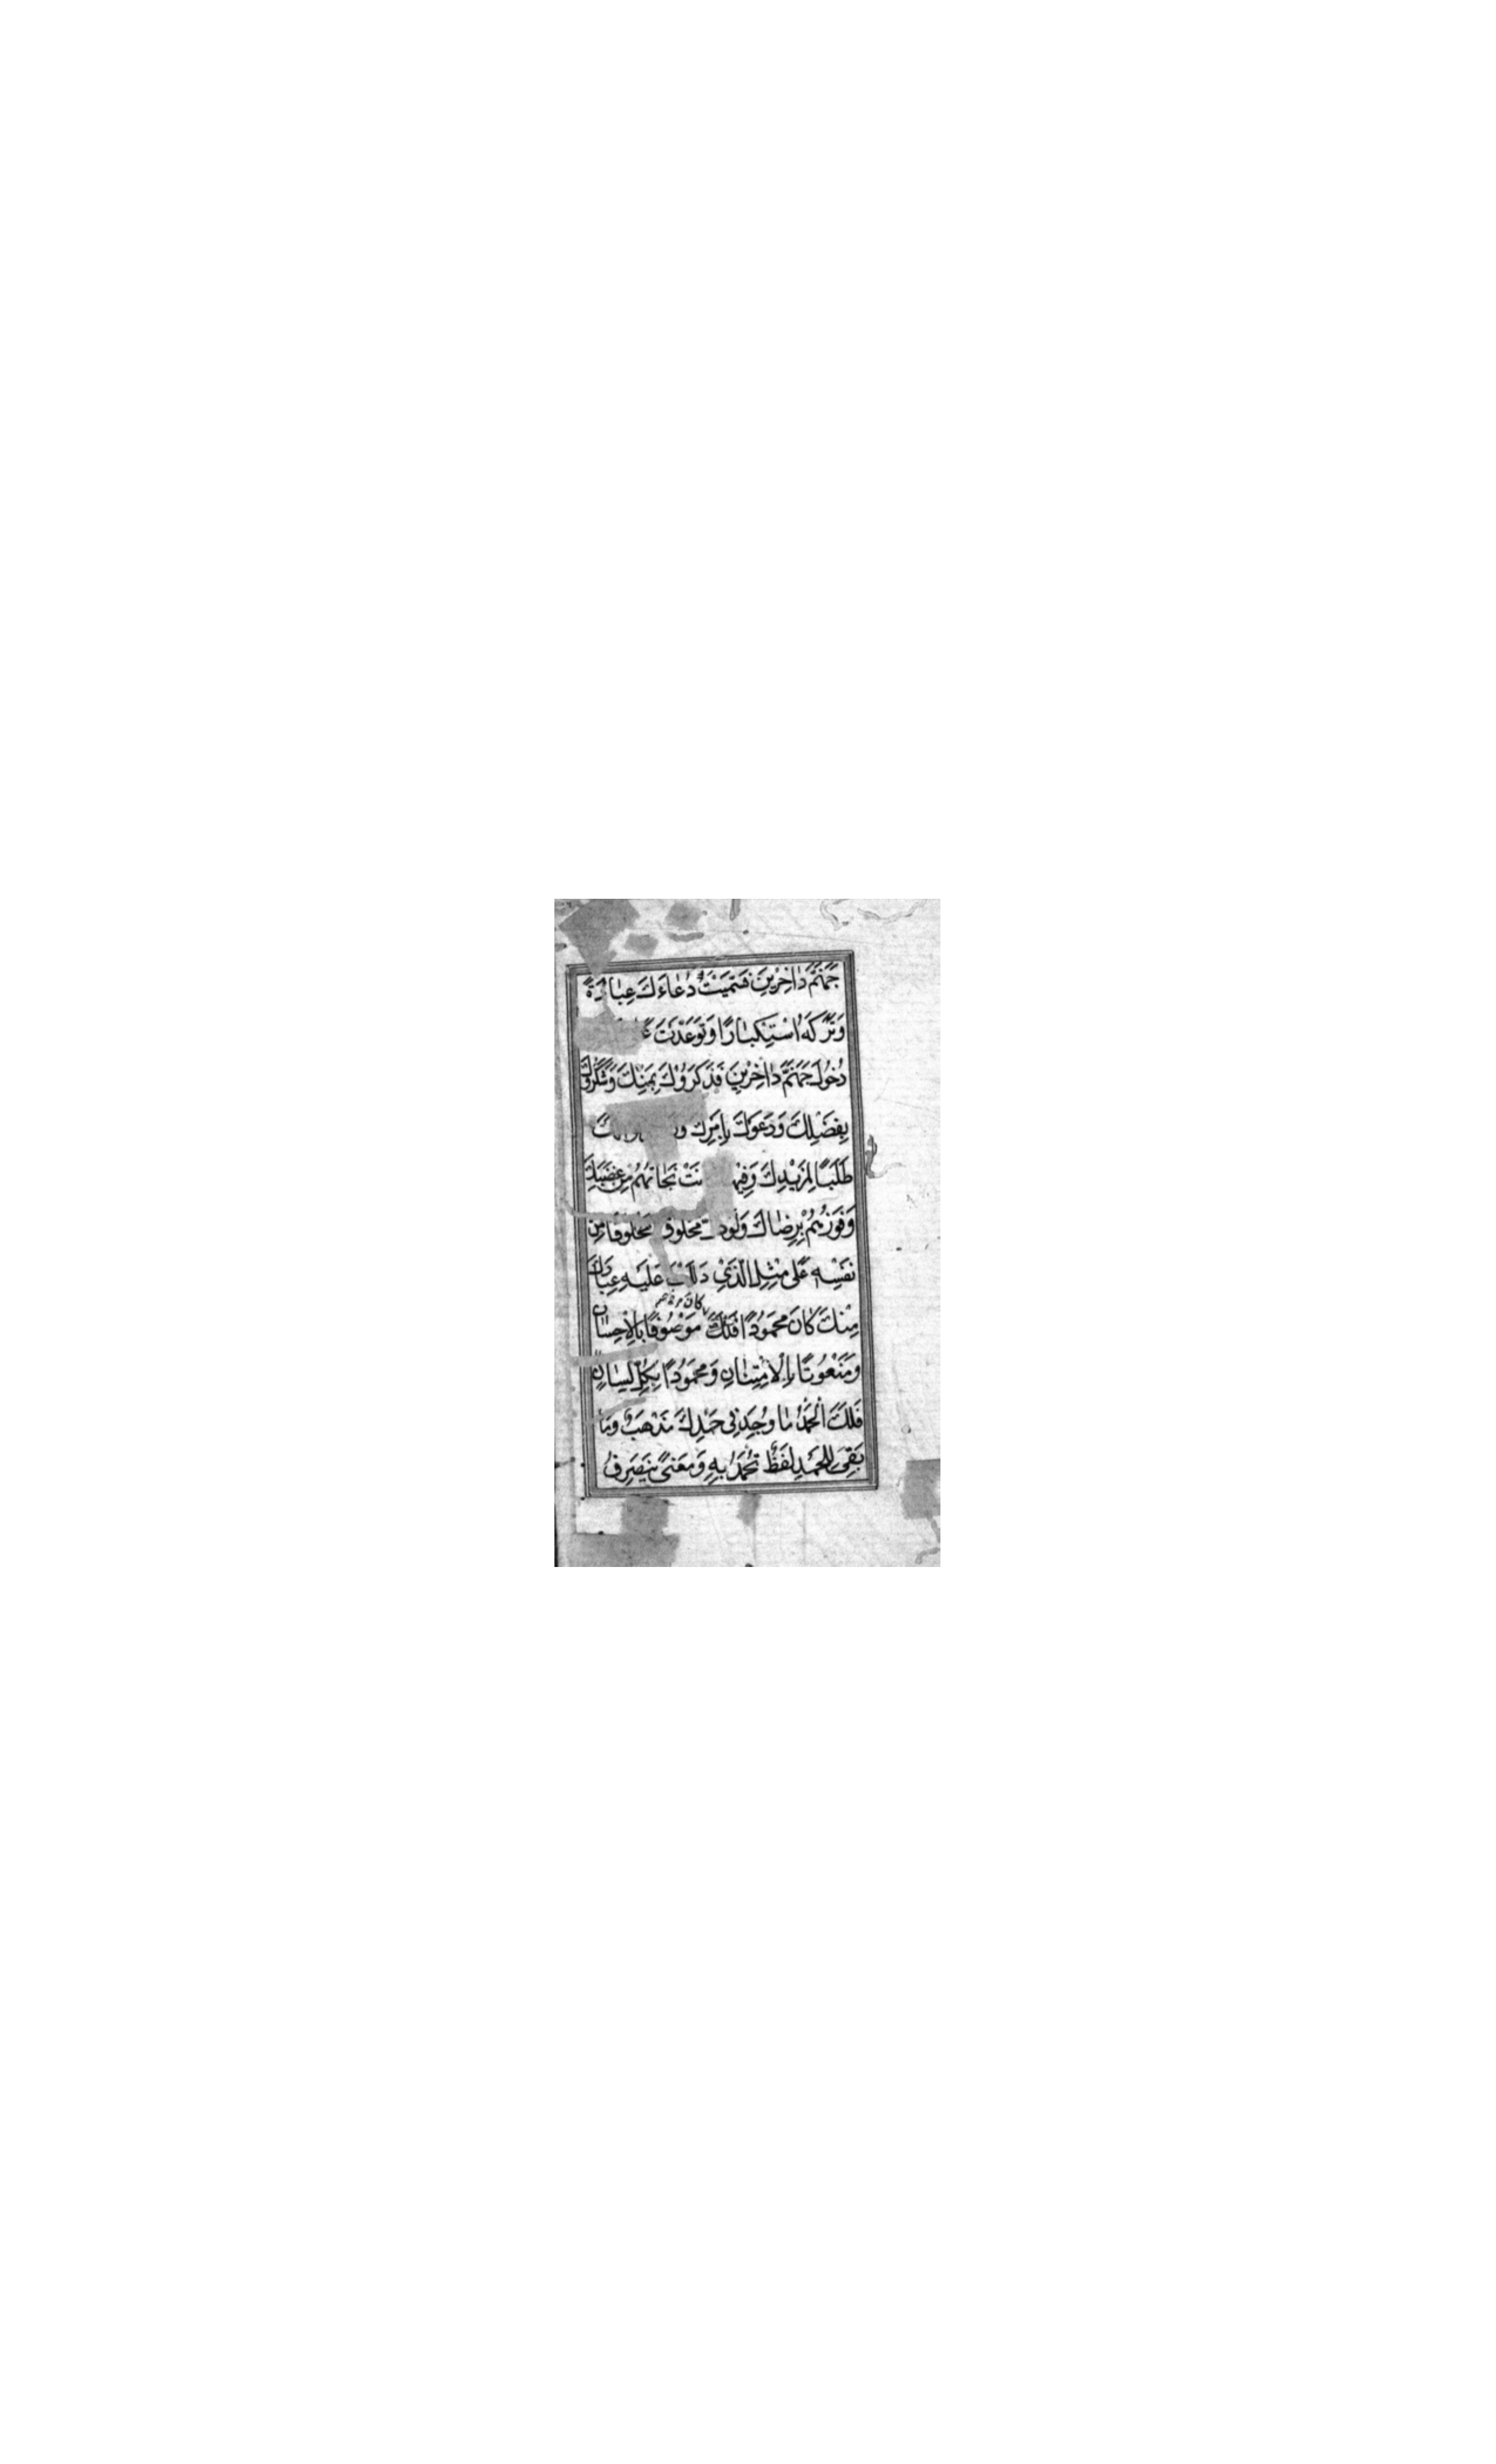 جَهَنَّمَ دٰاخِرِينَ فَسَمَّيْتَ دُعٰاءَكَ عِبٰادَةً
وَتَرْكَهُ اسْتِكْبٰارًا وَتَوَعَّدْتَ
دُخُولَ جَهَنَّمَ دٰاخِرِينَ فَذَكَرُوكَ بِمَنِّكَ وَشَكَرُوكَ
بِفَضْلِكَ وَدَعَوْكَ بِاَمْرِكَ
طَلَبًا لِمَزِيدِكَ نَجٰاتُهُمْ مِنْ غَضَبِكَ
وَفَوْزُهُمْ بِرِضٰاكَ وَلَوْ مَخْلُوقٌ مَخْلُوقًا مِنْ
نَفْسِهِ عَلٰى مِثْلِ الَّذِي دَلَلْتَ عَلَيْهِ عِبٰادَكَ
مِنْكَ كٰانَ مَحْمُودًا فَلَكَ مَوْصُوفًا بِالْاِحْسٰانِ
وَمَنْعُوتًا بِالْاِمْتِنٰانِ وَمَحْمُودًا بِكُلِّ لِسٰانٍ
فَلَكَ الْحَمْدُ مٰا وُجِدَ فِي حَمْدِكَ مَذْهَبٌ وَمٰا
بَقِيَ لِلْحَمْدِ لَفْظٌ تُحْمَدُ بِهِ وَمَعْنًى يَنْصَرِفُ